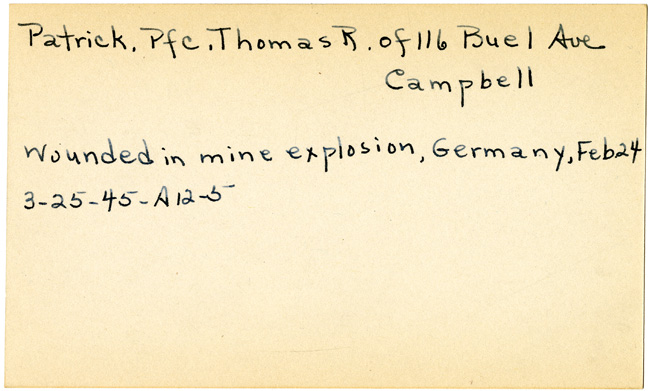 Patrick, Pfc. Thomas R. of 116 Buel Ave
Campbell
Wounded in mine explosion, Germany, Feb 24
3-25-45-A12-5